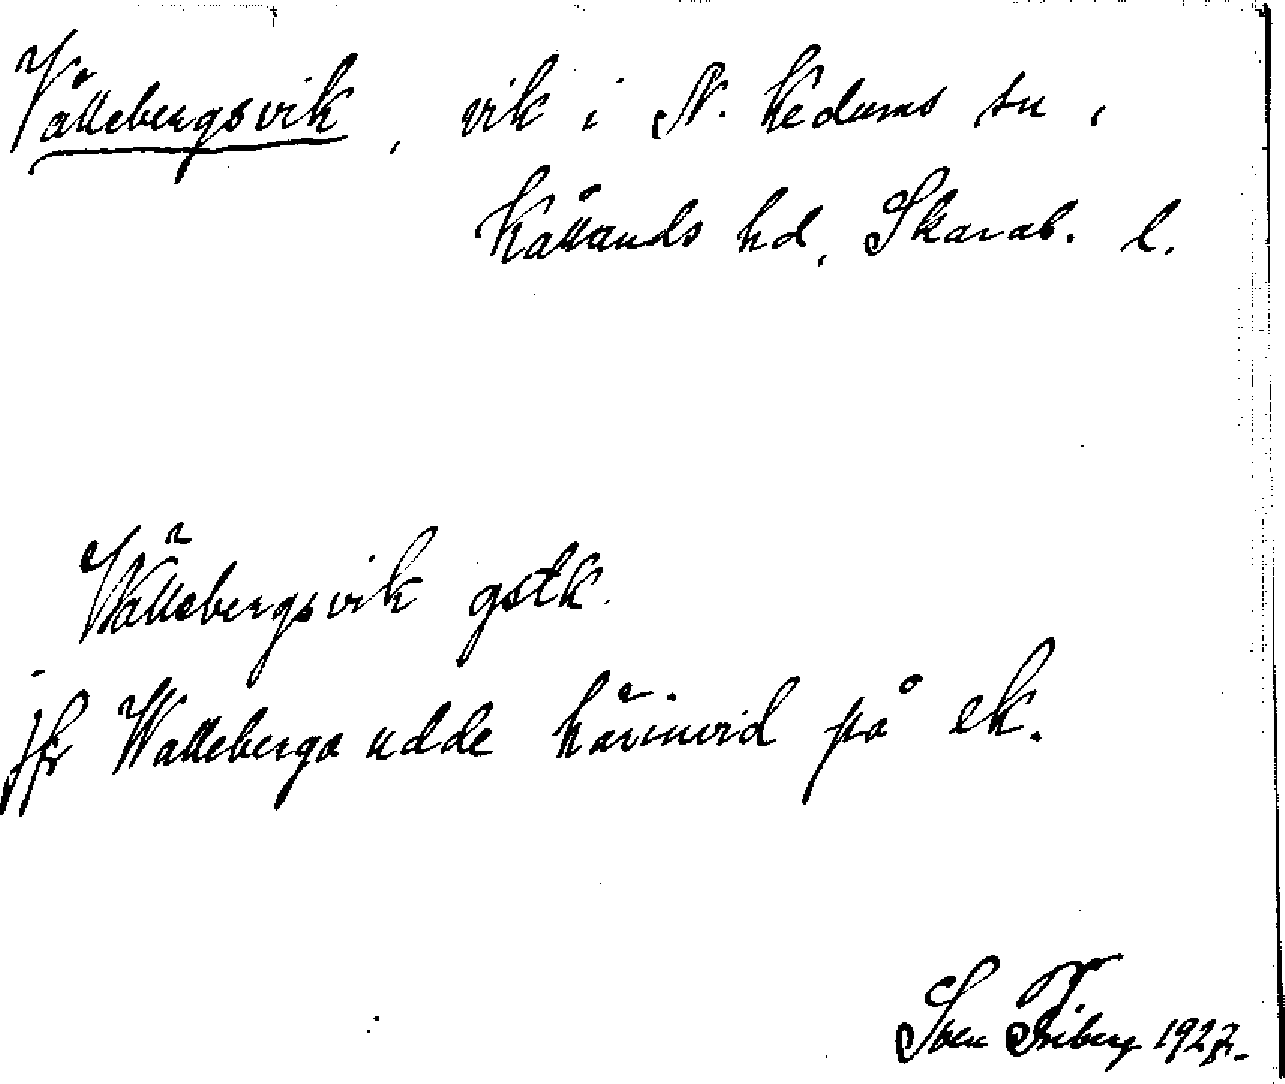 Vällebergsvik, vik i N. Kedums sn,
Kållands hd, Skarab. l.
Wällebergsvik gstk.
jfr Walleberga udde härinvid på ek.
Sven Friberg 1927.